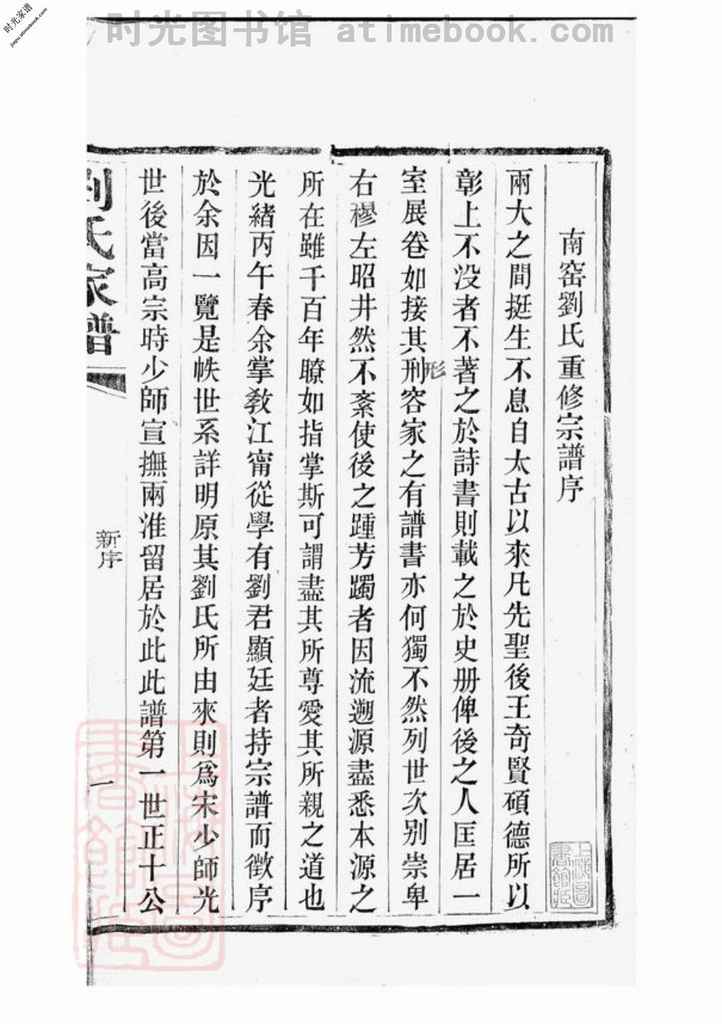 时光图书馆 atimebook.com
时光家谱
jiapu.atimebook.com
南窑劉氏重修宗譜序
兩大之間挺生不息自太古以來凡先聖後王奇賢碩德所以
彰上不没者不著之於詩書則載之於史册俾後之人匡居一
室展卷如接其刑容家之有譜書亦何獨不然列世次别崇卑
形
右穆左昭井然不紊使後之踵芳躅者因流遡源盡悉本源之
所在雖千百年瞭如指掌斯可謂盡其所尊愛其所親之道也
光緒丙午春余掌敎江甯從學有劉君顯廷者持宗譜而徵序
於余因一覽是帙世系詳明原其劉氏所由來則爲宋少師光
世後當高宗時少師宣撫兩淮留居於此此譜第一世正十公
劉氏家譜
新序
一